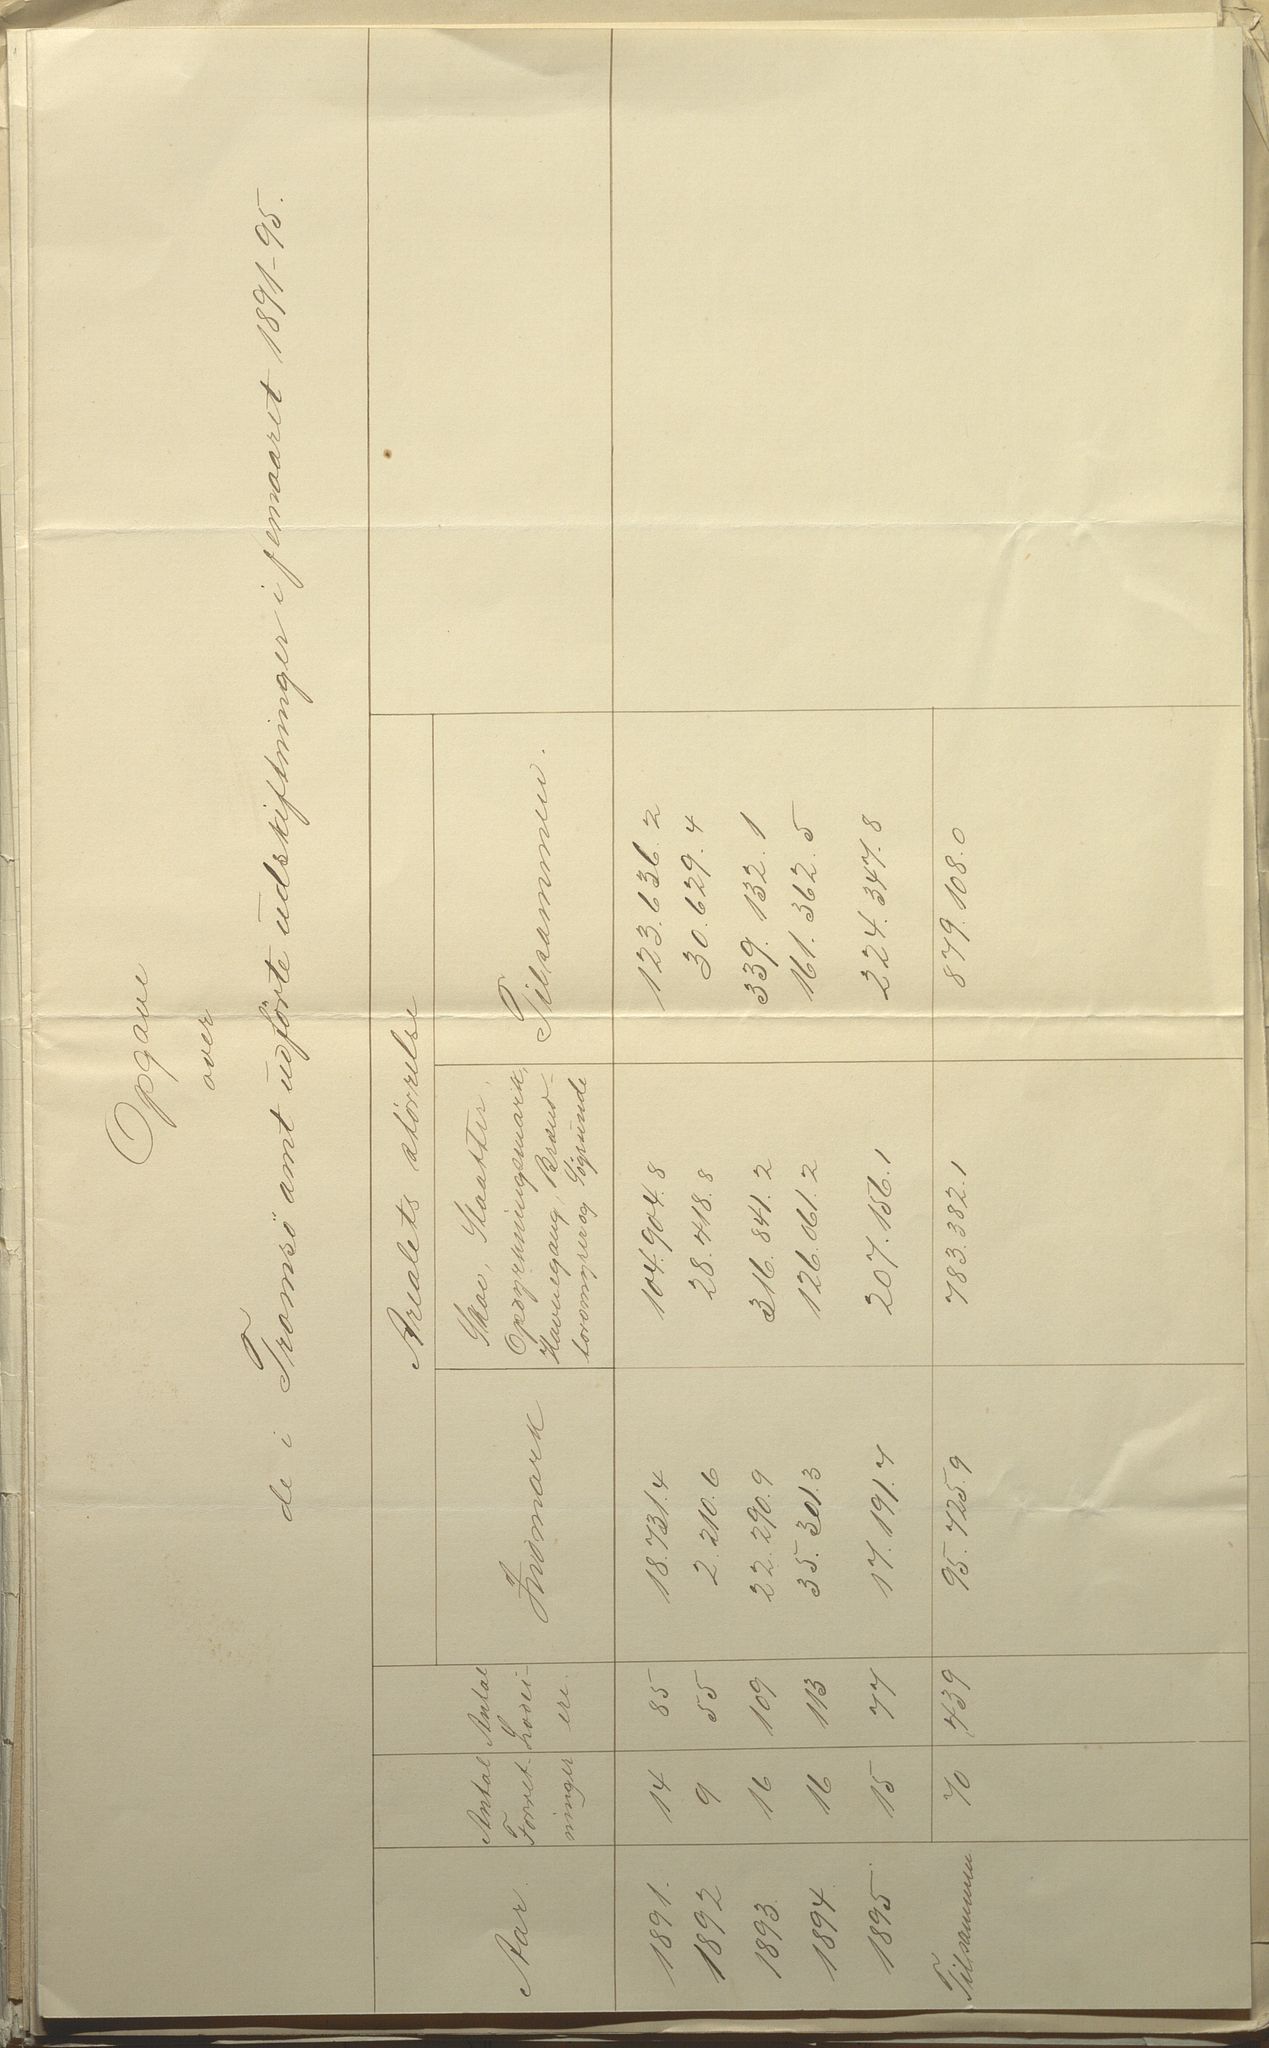 Opgave
over
de i Tromsö amt udförte udskiftninger i femaaret 1891-95.
Aar. Antal Forret- ninger Antal Lodei- ere. Arealets störrelse
Indmark Skov, Slaatter, Opdyrkningsmark, Havnegang, Brænd- torvmyrer og Tilsammen.
1891. 14 85 18.731.4 104.904.8 123.636.2
1892 9 55 2.210.6 28.418.8 30.629.4
1893. 16 109 22.290.9 316.841.2 339.132.1
1894. 16 113 35.301.3 126.061.2 161.362.5
1895 15 77 17.191.7 207.156.1 224.347.8
Tilsammen 70 439 95.725.9 783.382.1 879.108.0